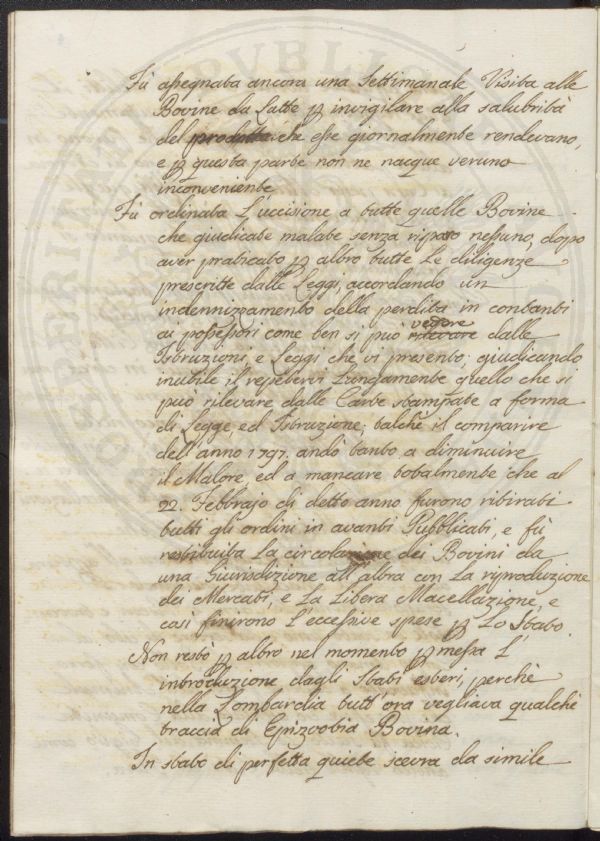 Fù assegnata ancora una Settimanale Visita alle
Bovine da Latte p invigilare alla salubrità
del prodotto che esse giornalmente rendevano,
e p questa parte non ne nacque veruno
inconveniente
Fù ordinata L'uccisione a tutte quelle Bovine
che giudicate malate senza riparo nessuno, dopo
aver praticato p altro tutte Le diligenze
prescritte dalle Leggi, accordando un
indennizzamento della perdita in contanti
ai possessori come ben si può vedere dalle
Istruzioni, e Leggi che vi presento; giudicando
inutile il repetervi Lungamente quello che si
può rilevare dalle Carte stampate a forma
di Legge, ed Istruzione; talchè il comparire
dell'anno 1797. andò tanto a diminuire
il Malore, ed a mancare totalmente che al
22. Febbrajo di detto anno furono ritirati
tutti gli ordini in avanti Pubblicati, e fù
restituita La circolazione dei Bovini da
una Giurisdizione all'altra con La riproduzione
dei Mercati, e La Libera Macellazione, e
così finirono L'eccessive spese p Lo Stato.
Non restò p altro nel momento pmessa L'
introduzione dagli Stati esteri, perchè
nella Lombardia tutt'ora vegliava qualchè
traccia di Epizootia Bovina.
In stato di perfetta quiete scevra da simile